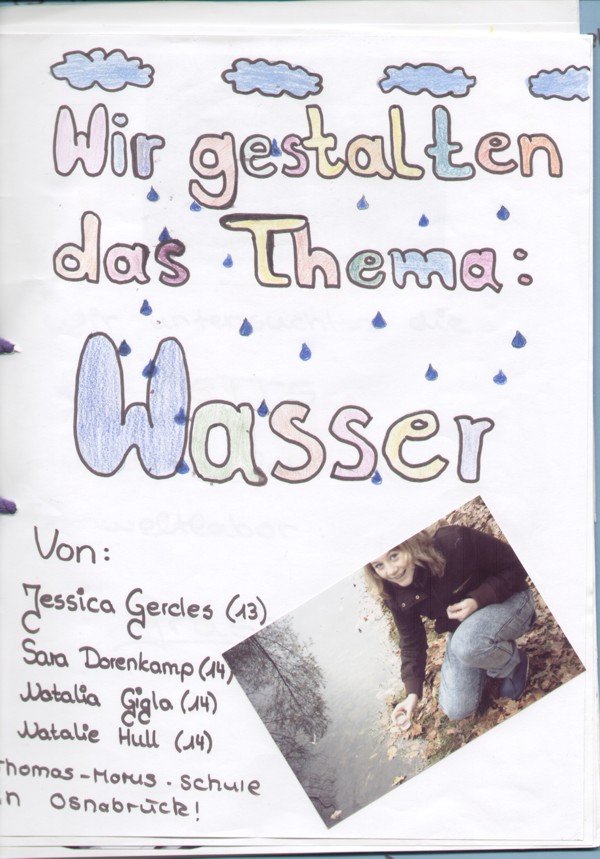 Wir gestalten
das Thema:
Wasser
Von:
Jessica Gerdes (13)
Sara Dorenkamp (14)
Natalia Gigla (14)
Natalie Hull (14)
Thomas-Morus-Schule
in Osnabrück!